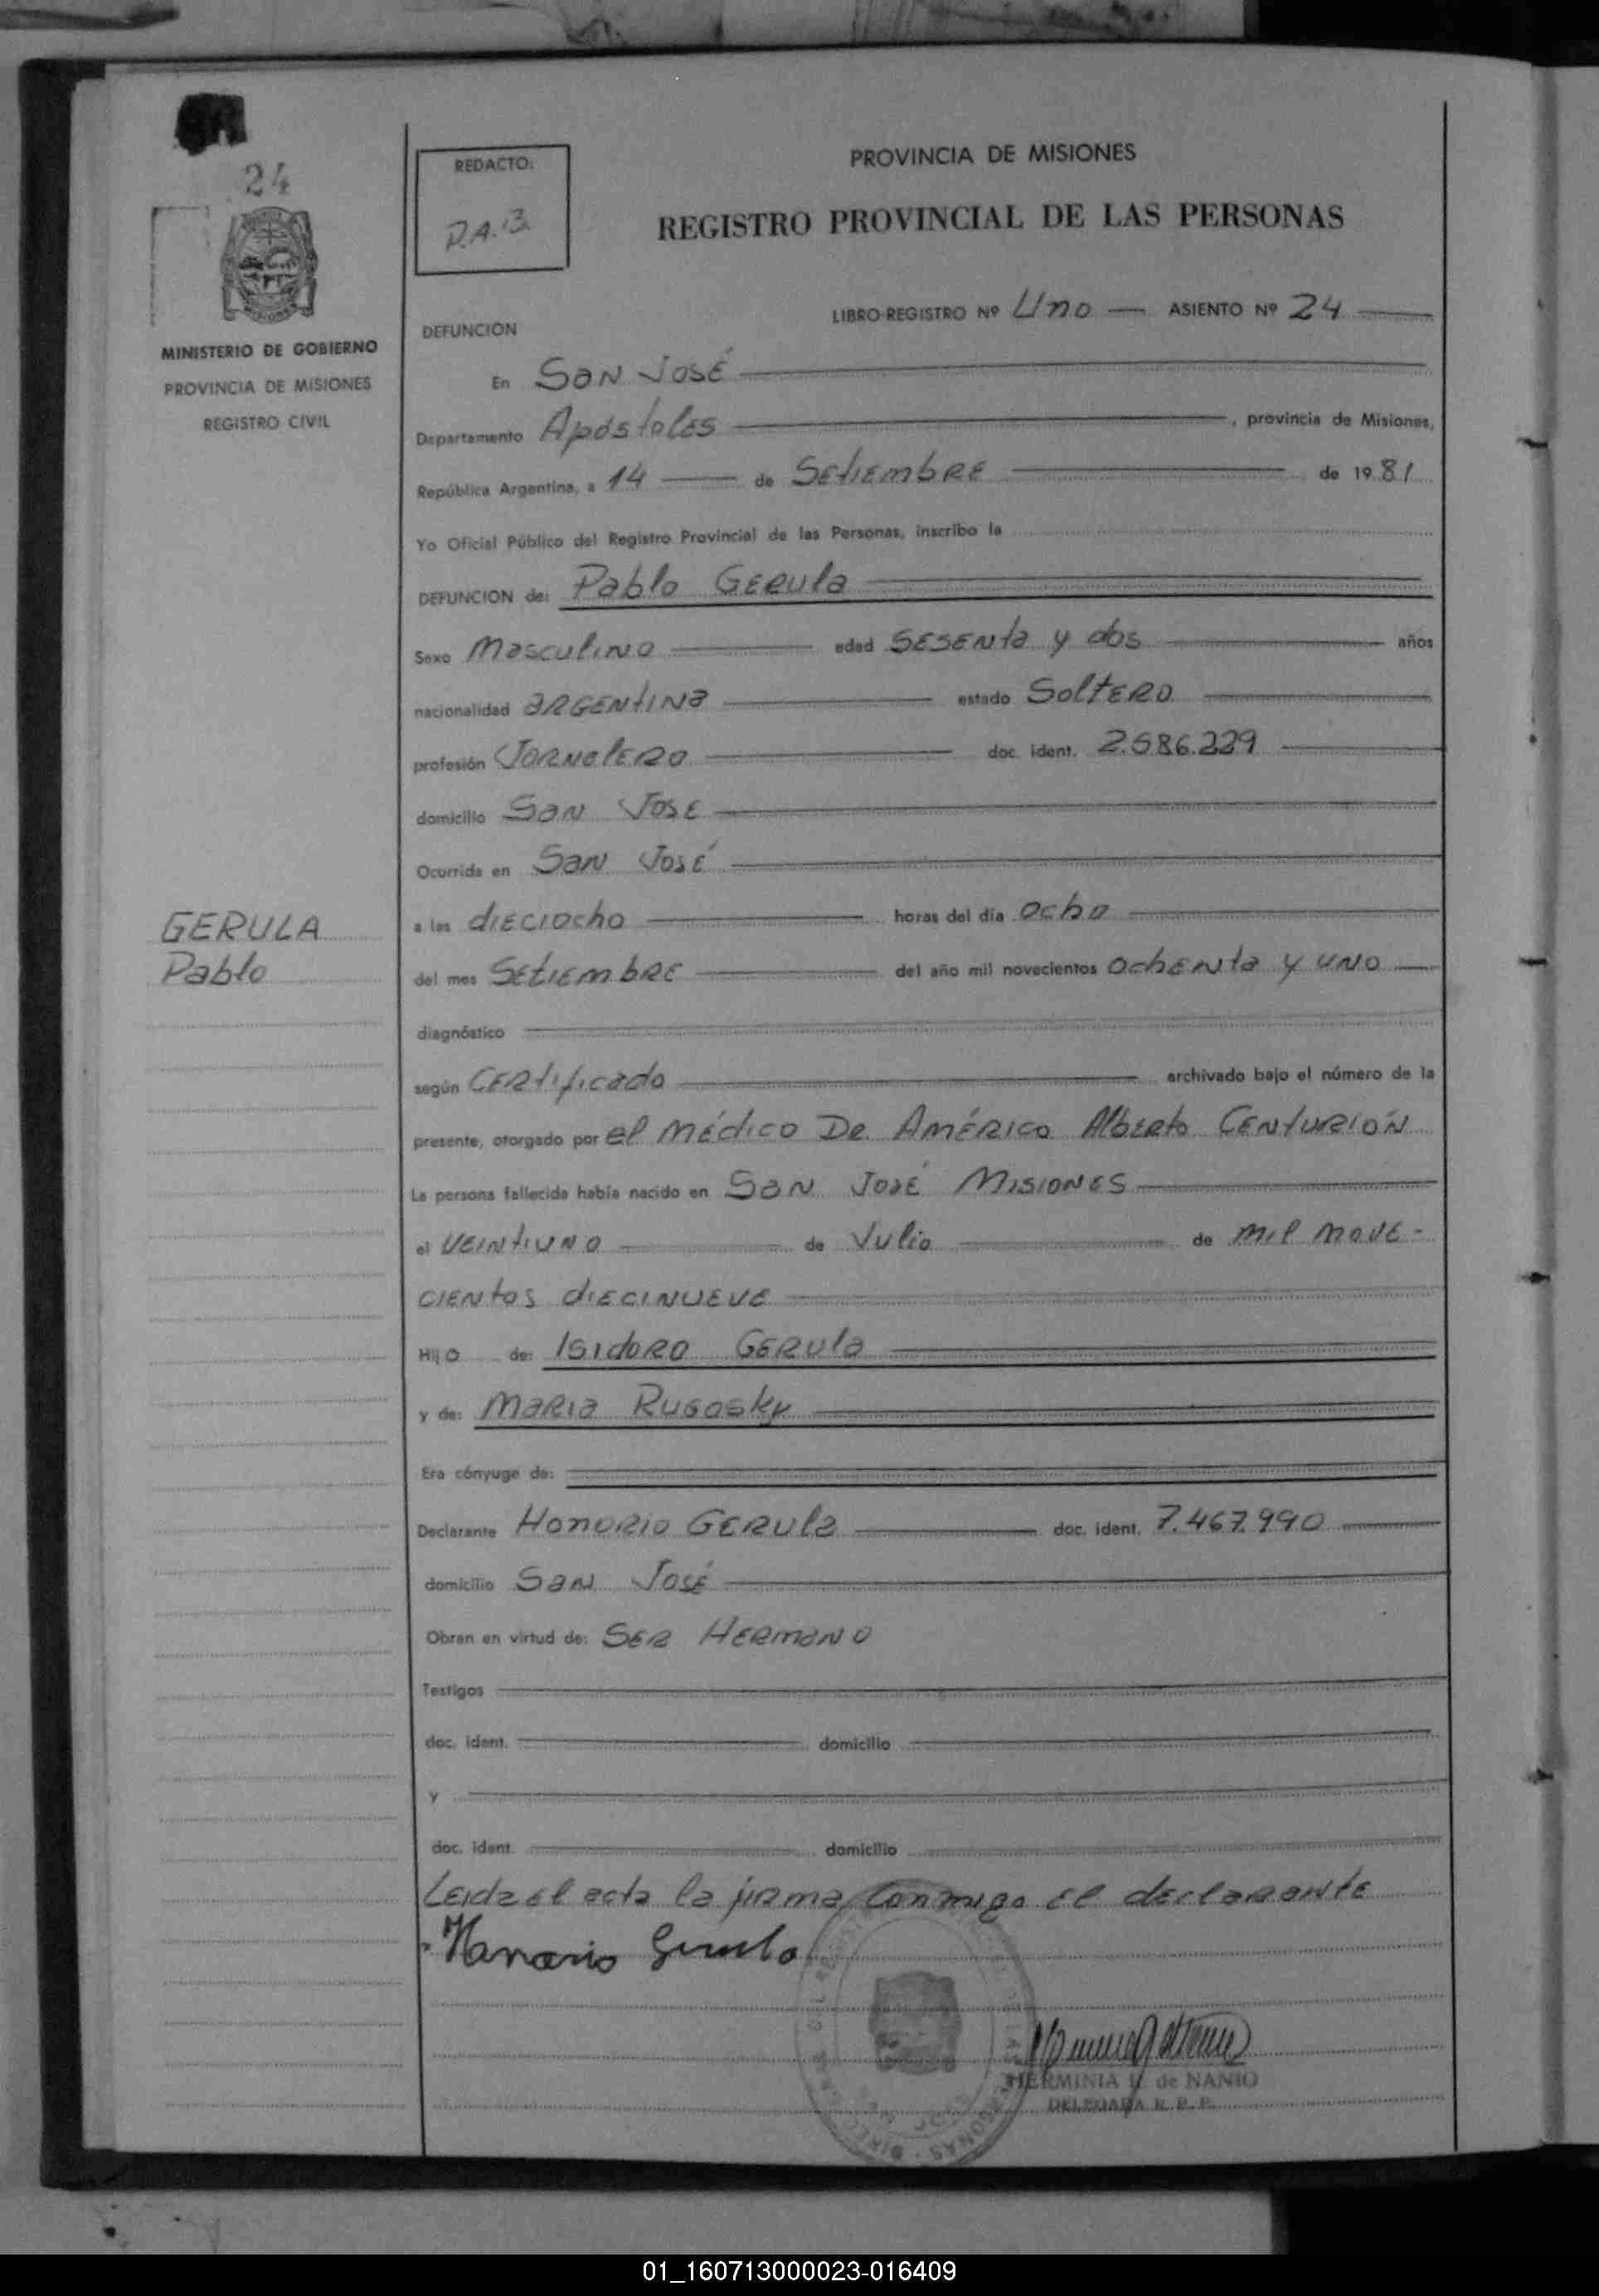 24
MINISTERIO DE GOBIERNO
PROVINCIA DE MISIONES
REGISTRO CIVIL
GERULA
Pablo
REDACTO:
P.A.B.
PROVINCIA DE MISIONES
REGISTRO PROVINCIAL DE LAS PERSONAS
LIBRO-REGISTRO Nº Uno — ASIENTO Nº 24
DEFUNCION
En San José
Departamento Apóstoles, provincia de Misiones,
República Argentina, a 14 de Setiembre de 1981
Yo Oficial Público del Registro Provincial de las Personas, inscribo la
DEFUNCION de: Pablo Gerula
Sexo Masculino edad sesenta y dos años
nacionalidad argentina estado Soltero
profesión Jornalero doc. ident. 2.586.229
domicilio San Jose
Ocurrida en San José
a las dieciocho horas del día ocho
del mes Setiembre del año mil novecientos ochenta y uno
diagnóstico
según Certificado archivado bajo el número de la
presente, otorgado por el médico Dr. Américo Alberto Centurión
La persona fallecida había nacido en San José Misiones
el veintiuno de Julio de mil nove-
cientos diecinueve
Hijo de: Isidoro Gerula
y de: Maria Rugosky
Era cónyuge de:
Declarante Honorio Gerula doc. ident. 7.467.990
domicilio San José
Obran en virtud de: Ser Hermano
Testigos
doc. ident. domicilio
y
doc. ident. domicilio
Leida el acta la firma conmigo el declarante
Honorio Gerula
HERMINIA de NANIO
DELEGADA R. P. P.
01_160713000023-016409